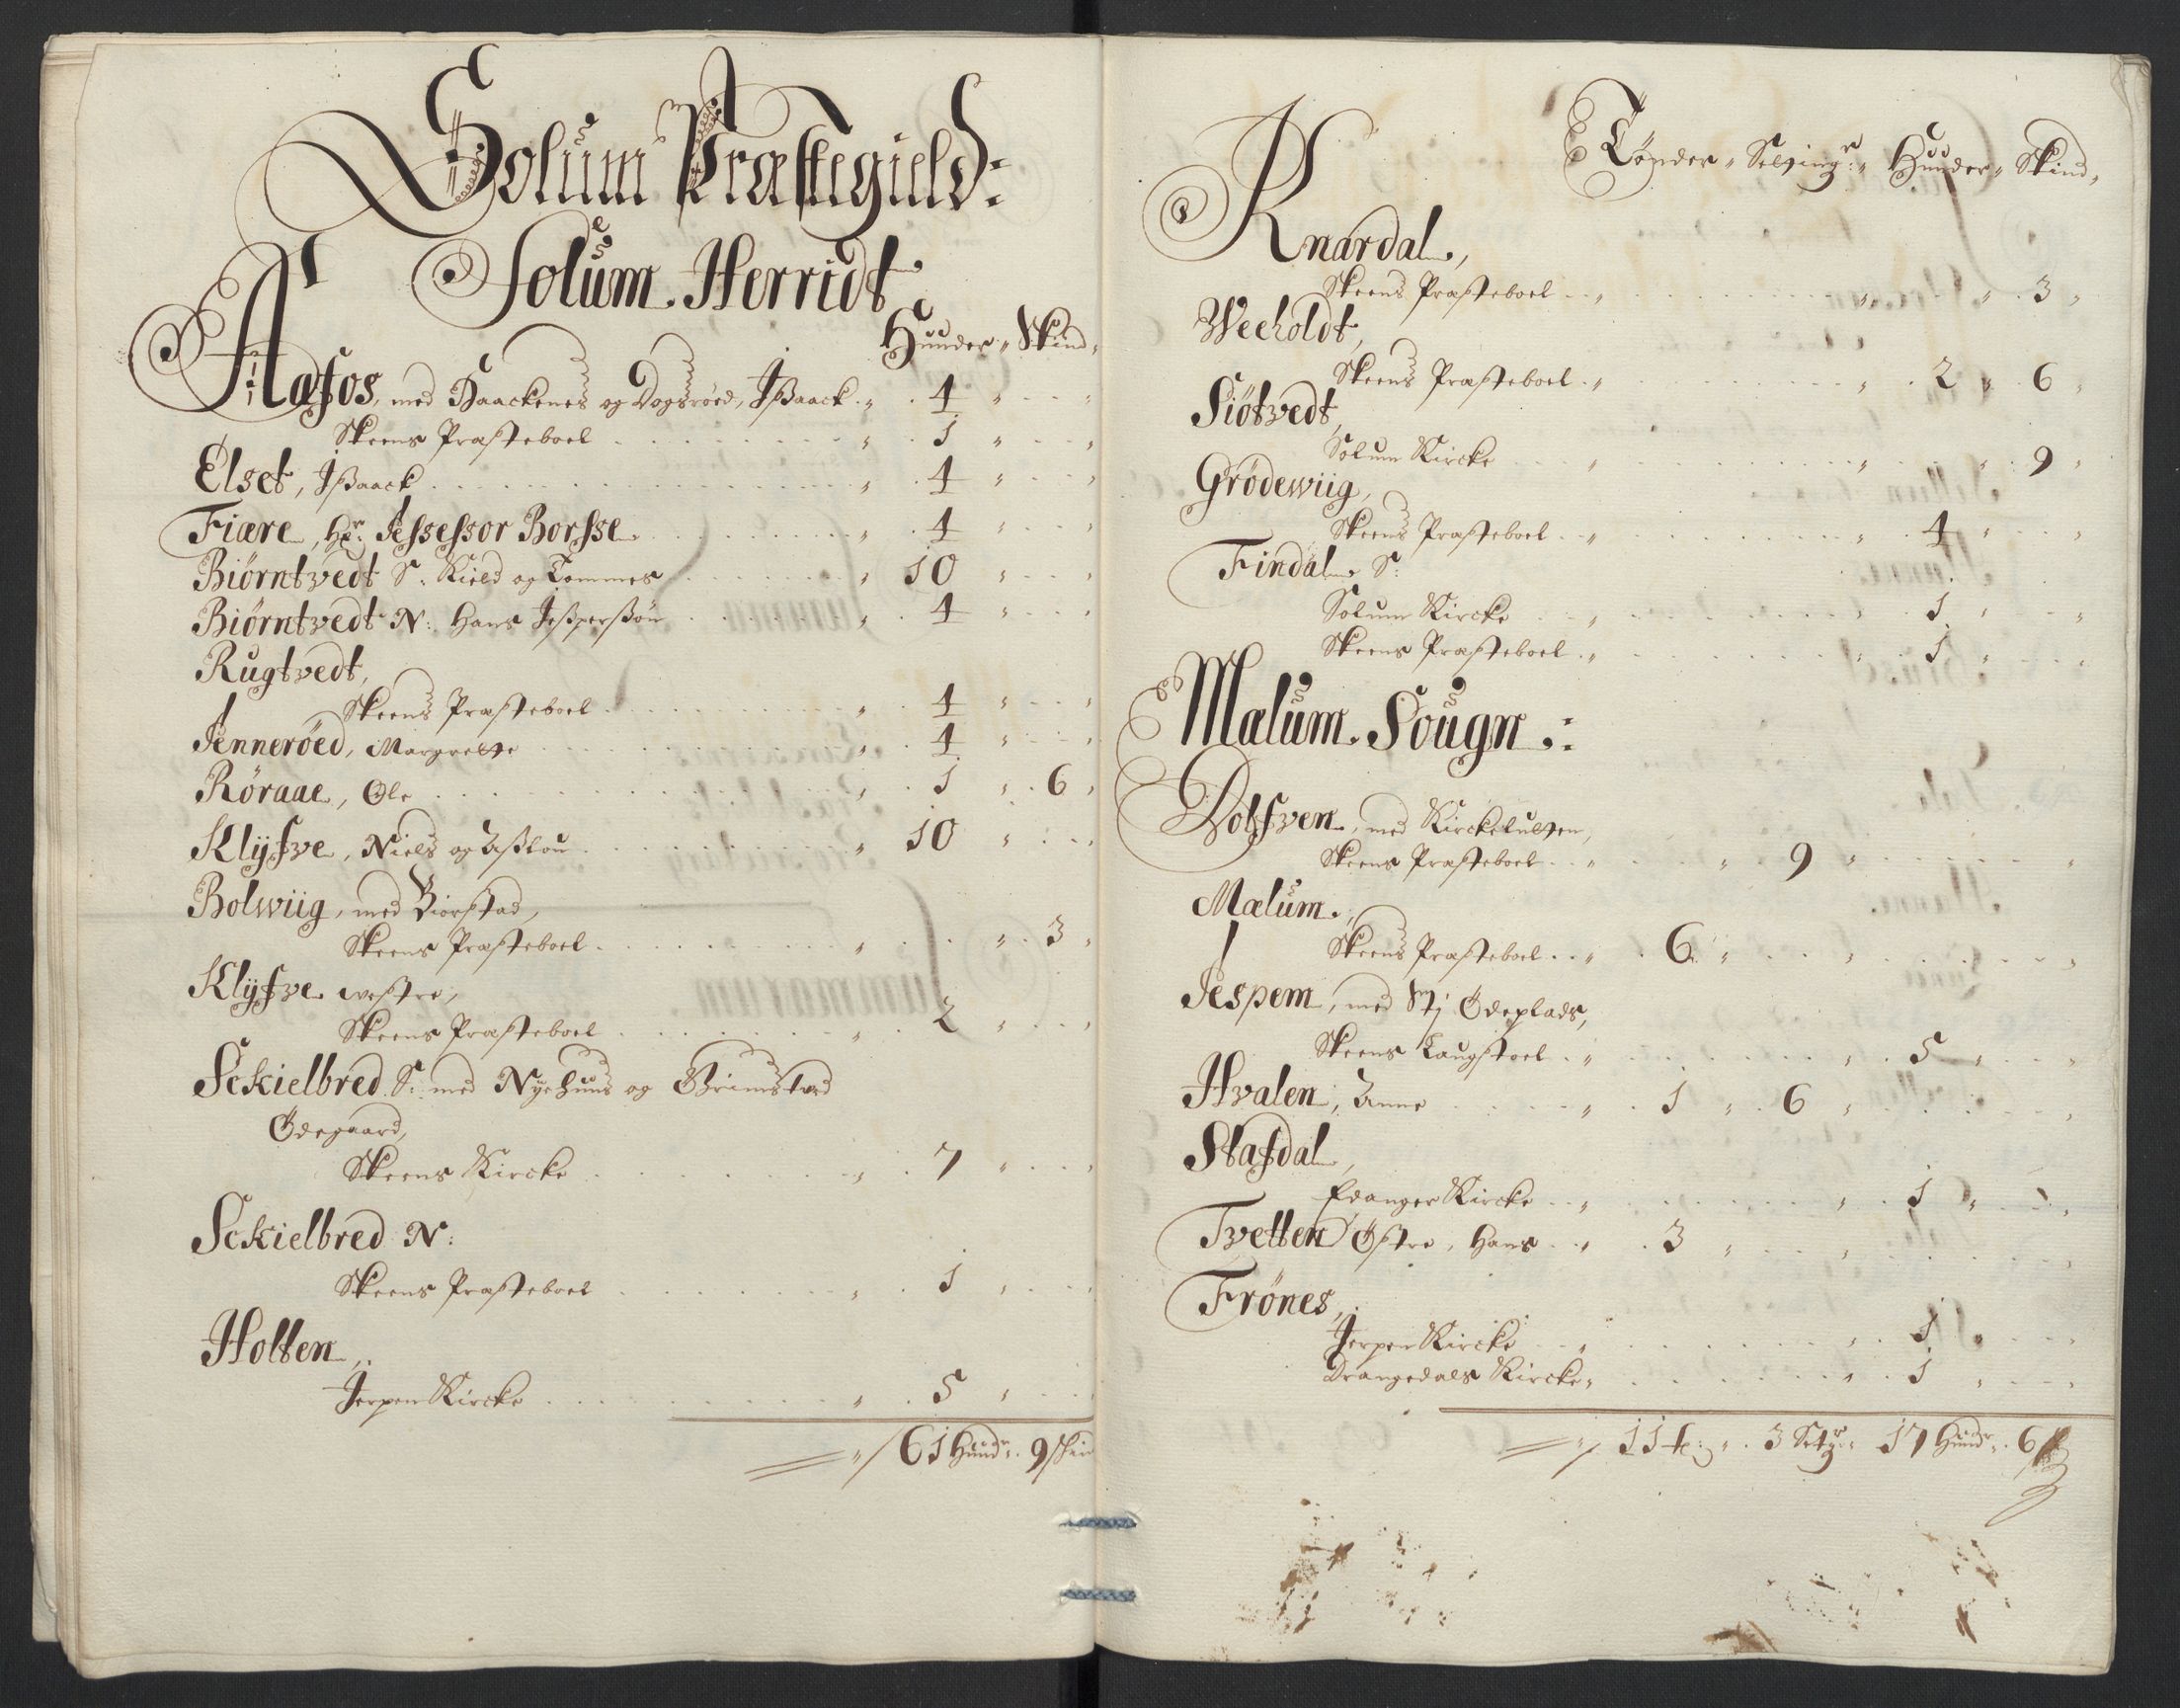 Solum Præstegield:
Solum Herridt
Hunder " Skind "
Aafos, med Haackenes og Dogsröed, Jßaack " 4 "
Skeens Præsteboel " 1 "
Elset, Jßaack " 4 "
Fiære, Hr: Assessor Borsse " 4 "
Biörntvedt S: Kield og Tommes " 10 "
Biörntvedt N: Hans Jesperßön " 4 "
Rugtvedt,
Skeens Præsteboel " 4 "
Jenneröed, Margrette " 4 "
Röraae, Ole " 1 " 6 "
Klÿfve, Niels og Aßlou " 10 "
Bolwiig, med Biörstad,
Skeens Præsteboel " " 3 "
Klÿfve westre,
Skeens Præsteboel " 2 "
Sckielbred S: med Nÿehuus og Grimstved
Ödegaard,
Skeens Kircke " 7 "
Sckielbred N:
Skeens Præsteboel " 1 "
Holten,
Jerpen Kircke " 5 "
61 Hundr: 9 skin
Tönder " Setting r: " Hunder " Skind "
Knardal,
Skeens Præsteboel " " " 3 "
Weeholdt,
Skeens Præsteboel " " 2 " 6 "
Siötvedt,
Solum Kircke " " " 9 "
Grödewiig,
Skeens Præsteboel " " 4 "
Findal S:
Solum Kircke " " 1 "
Skeens Præsteboel " " 1 "
Mælum Sougn:
Dolfven, med Kirckelutten,
Skeens Præsteboel " " 9 "
Mælum,
Skeens Præsteboel " 6 "
Jespem, med Ödeplads,
Skeens Laugstoel " " 5 "
Hvalen, Anne " 1 " 6 "
Stafdal,
Edanger Kircke " " 1 "
Tvetten Östre, Hans " 3 "
Frönes,
Jerpen Kircke " " 1 "
Drangedals Kircke " " 1 "
11 t: " 3 Set r: 17 Hundr: 6